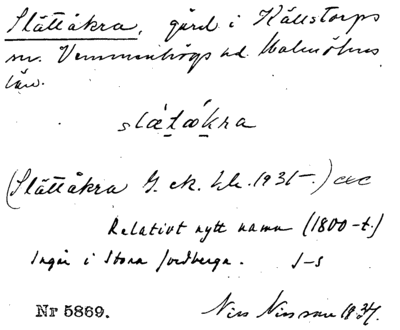 Slättåkra, gård i Källstorps
sn. Vemmenhögs hd. Malmöhus
län.
slätåkra
(Slättåkra G. ek. bl. 1935.)
Relativt nytt namn (1800-t.)
Ingår i Stora Jordberga. S-s
Nr 5869. Nils Nilsson 1937.